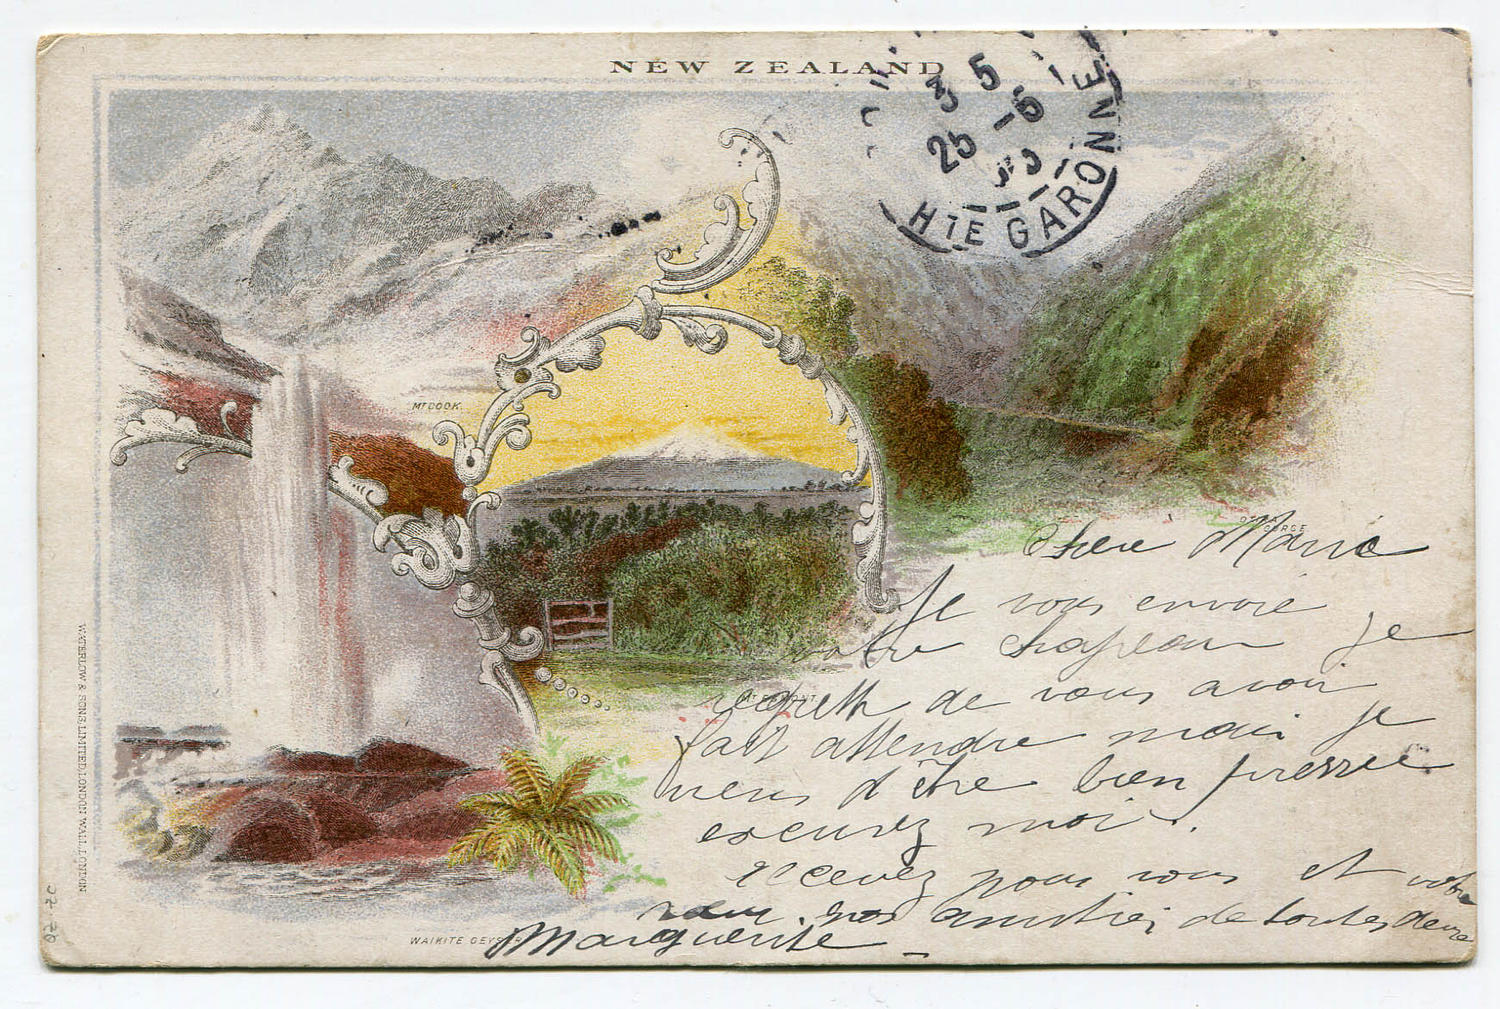 NEW ZEALAND
3 5
25 -5
HTE GARONNE
MT COOK.
GORGE
Chere Marie
Je vous envoie
votre chapeau je
regrette de vous avoir
fait attendre mais je
viens d'être bien pressée
excusez moi.
recevez pour vous et votre
nos amitiés de toutes deux
Marguerite
WAIKITE GEYSER
WATERLOW & SONS, LIMITED, LONDON WALL, LONDON